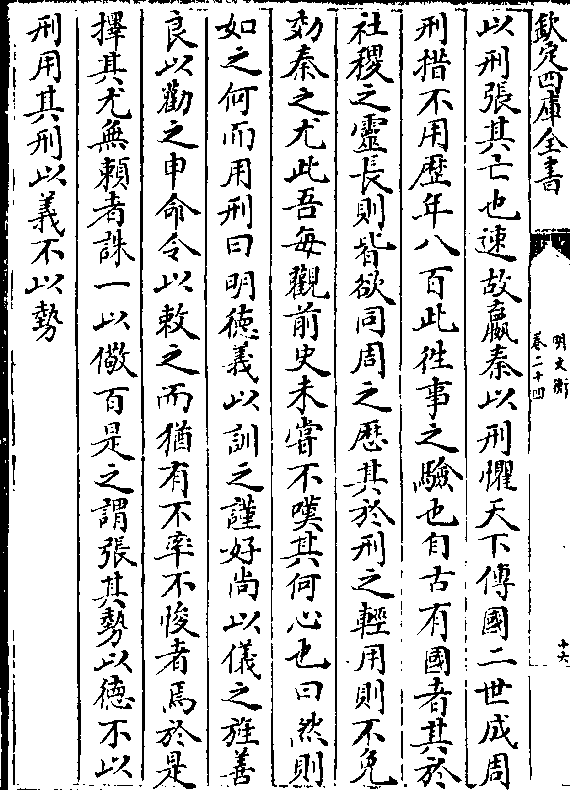 欽定四庫全書
明文衡
卷二十四
十六
以刑張其亡也速故嬴秦以刑懼天下傳國二世成周
刑措不用歴年八百此徃事之驗也自古有國者其於
社稷之靈長則皆欲同周之歴其於刑之輕用則不免
効秦之尤此吾每觀前史未嘗不嘆其何心也曰然則
如之何而用刑曰明徳義以訓之謹好尚以儀之旌善
良以勸之申命令以敕之而猶有不率不悛者焉於是
擇其尤無頼者誅一以儆百是之謂張其勢以徳不以
刑用其刑以義不以勢